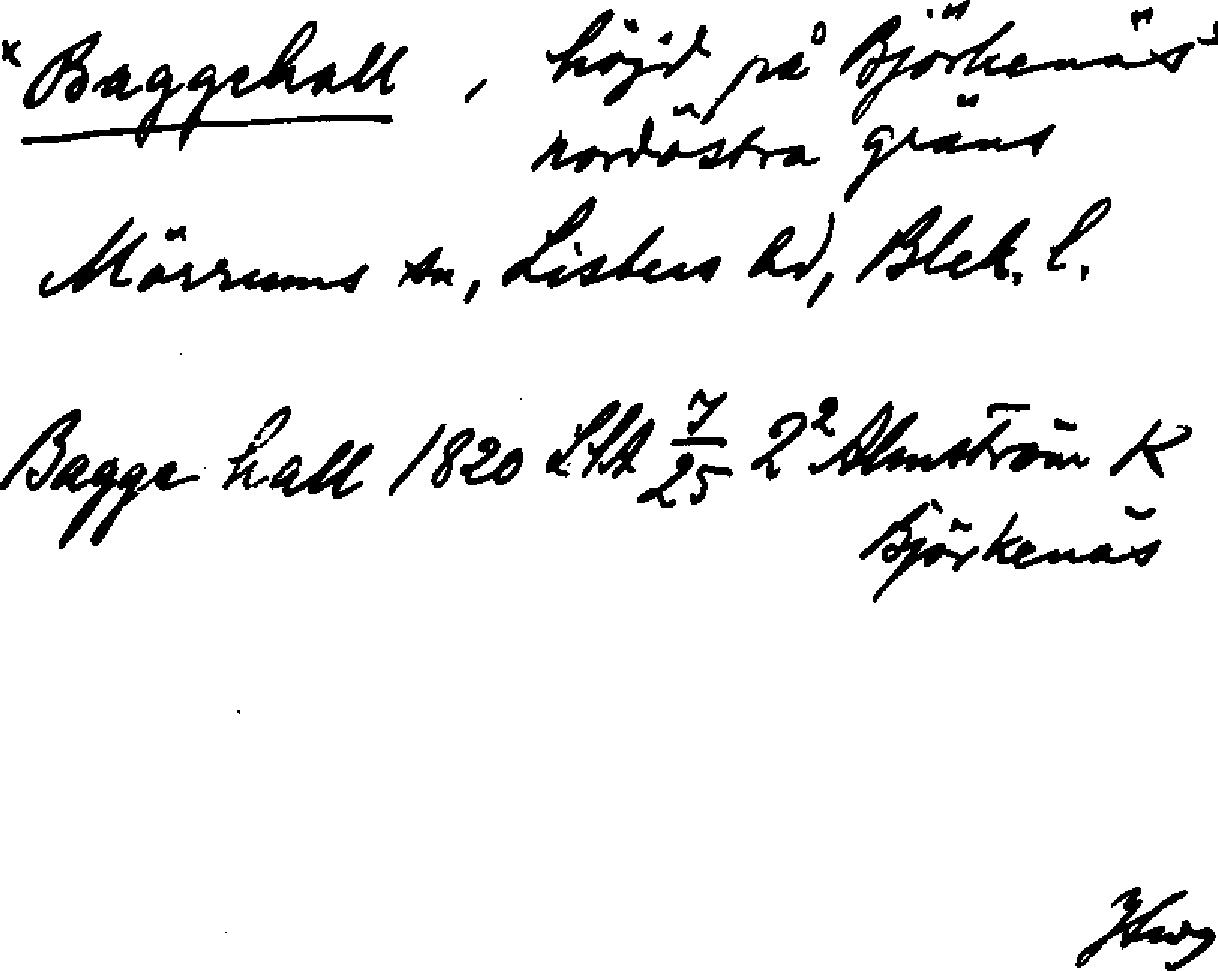 *Baggehall, höjd på Björkenäs'
nordöstra gräns
Mörrums sn, Listers hd, Blek. l.
Bagge hall 1820 LSA 7/25 2² Almström K
Björkenäs